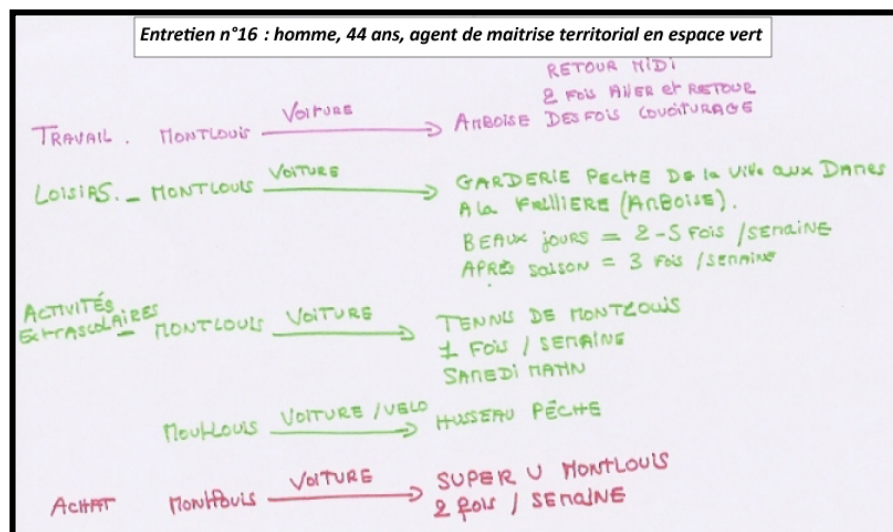 Entretien n°16 : homme, 44 ans, agent de maitrise territorial en espace vert
RETOUR MIDI
2 FOIS ALLER et RETOUR
TRAVAIL . MONTLOUIS VOITURE AMBOISE DES FOIS COVOITURAGE
LOISIRS. _ MONTLOUIS VOITURE GARDERIE PECHE DE la Ville aux DAMES
A la (AMBOISE).
BEAUX jours = 2-5 FOIS / SEMAINE
APRÈS saison = 3 FOIS / SEMAINE
ACTIVITÉS
EXTRASCOLAIRES _ MONTLOUIS VOITURE TENNIS DE MONTLOUIS
1 FOIS / SEMAINE
SAMEDI MATIN
MONTLOUIS VOITURE / VELO HUSSEAU PÊCHE
ACHAT MONTLOUIS VOITURE SUPER U MONTLOUIS
2 fois / SEMAINE